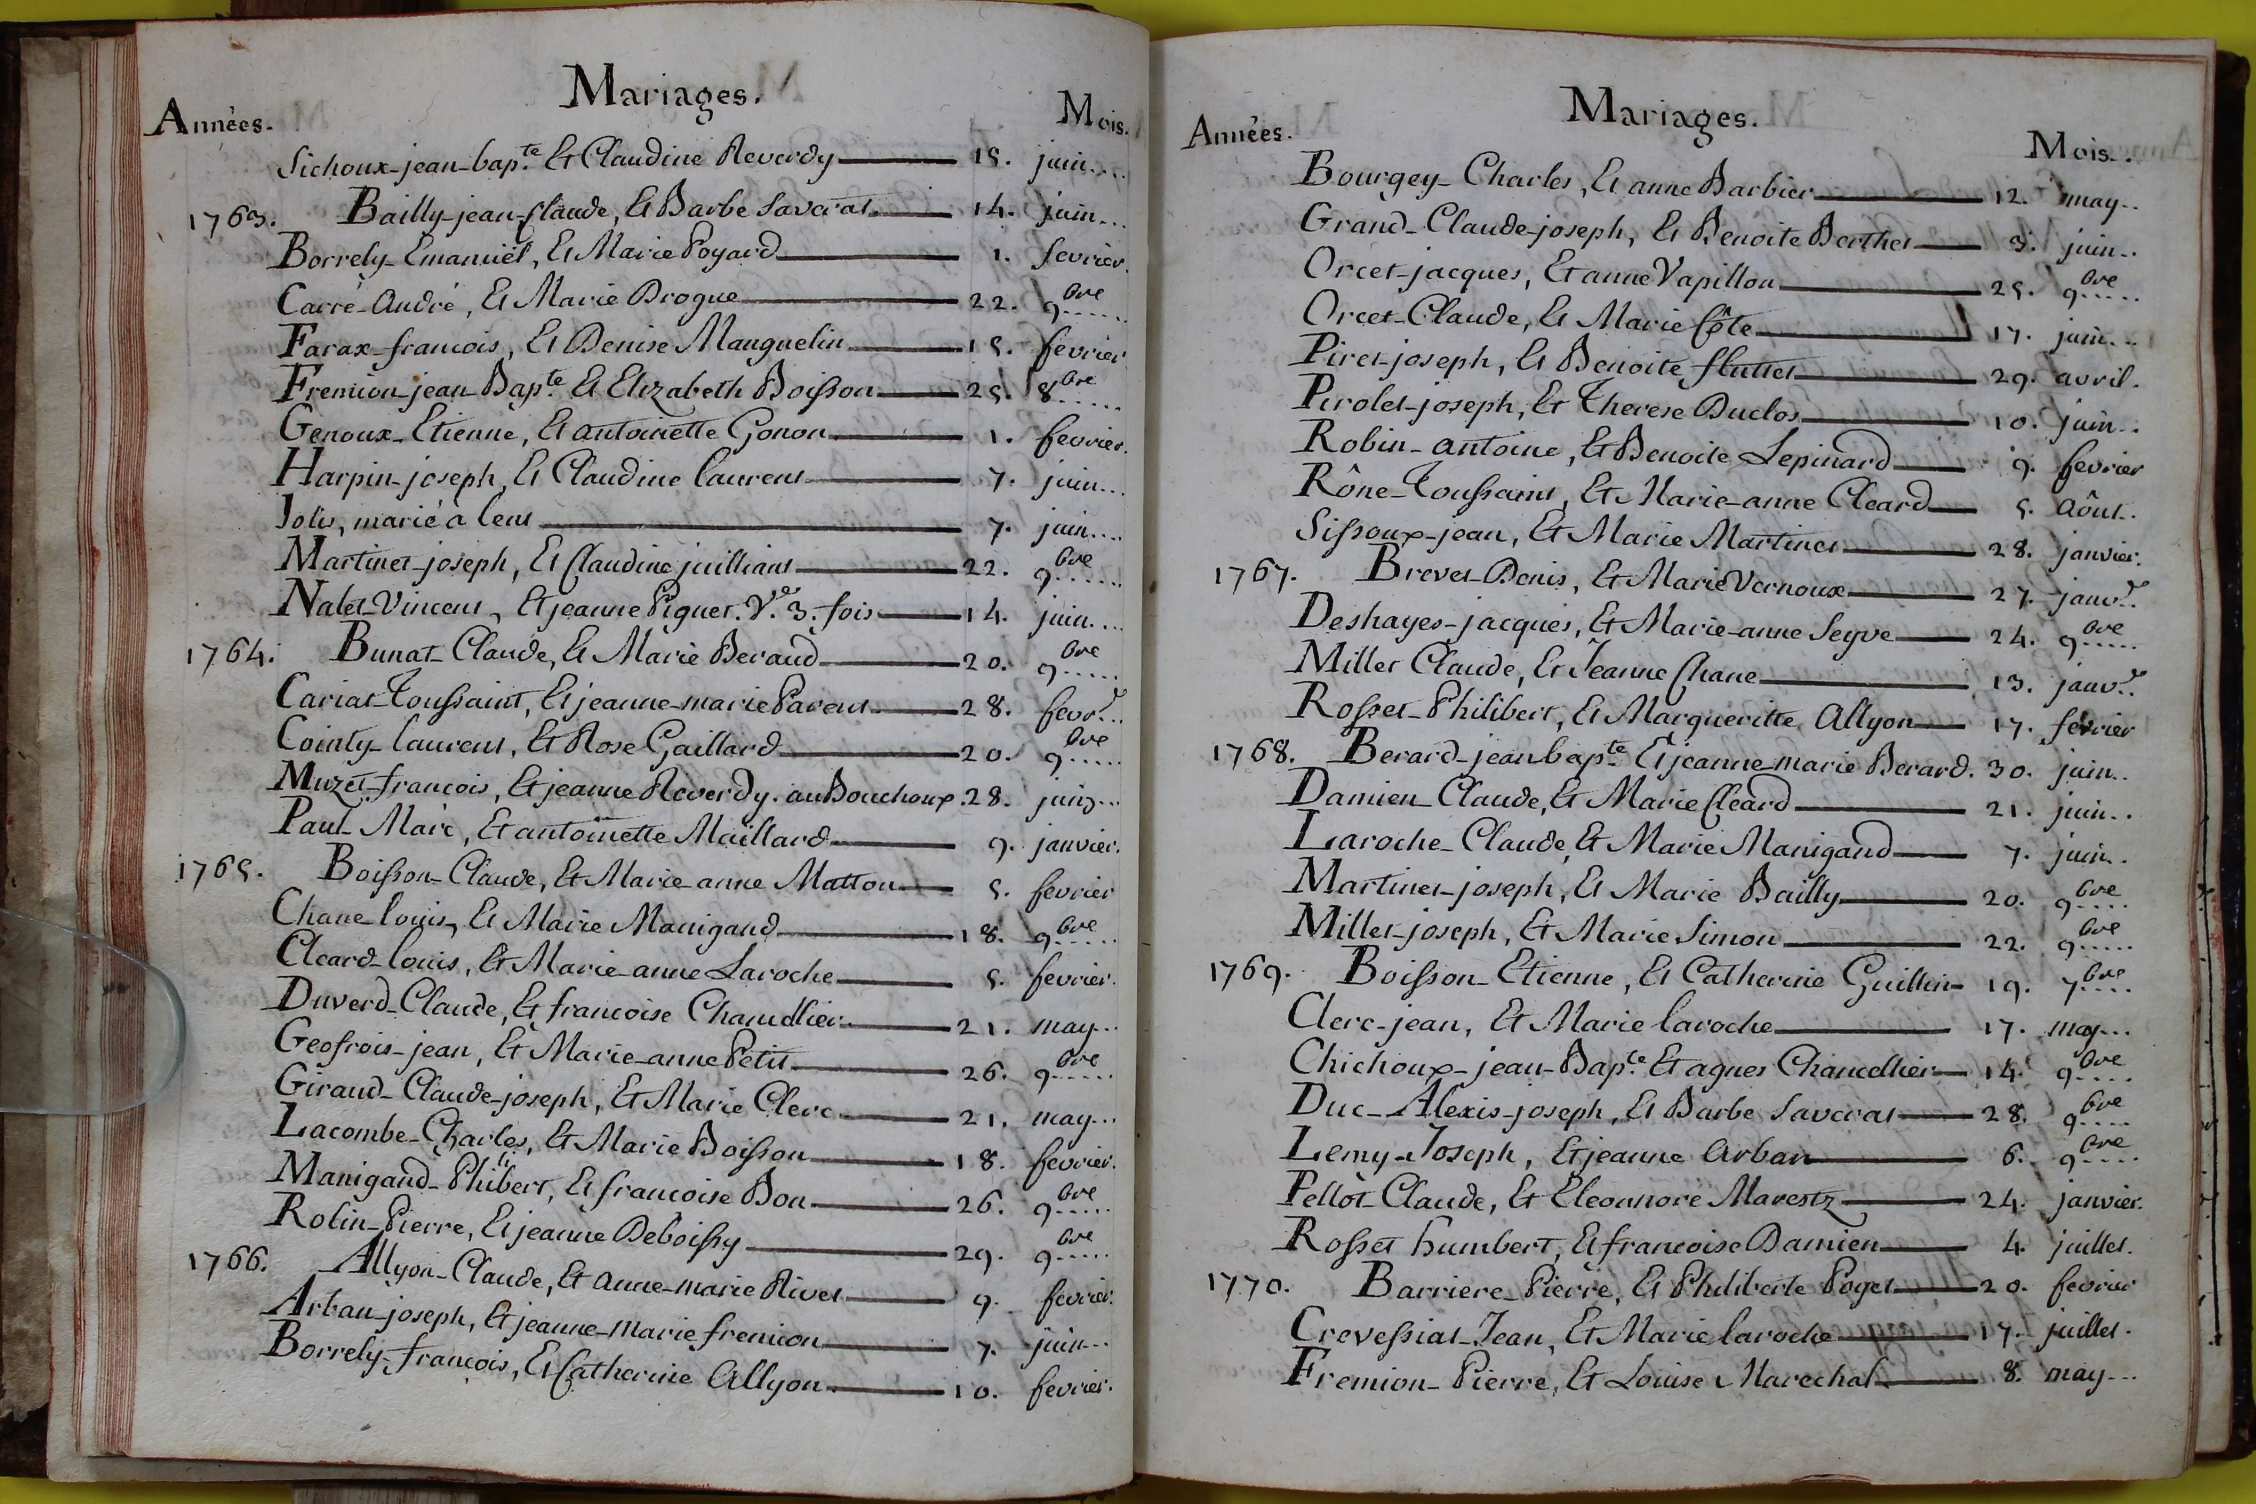 Mariages.
Années. Mois.
Sichoux-jean-bap.te Et Claudine Reverdy 15. juin....
1763. Bailly-jean-Claude, Et Barbe Saverat 14. juin...
Borrely-Emanuël, Et Marie Poyard 1. fevrier.
Carré-André, Et Marie Brogue 22. 9bre.....
Farax-francois, Et Denise Manguelin 15. fevrier
Fremion-jean Bap.te Et Elizabeth Boisson 25. 8bre.....
Genoux-Etienne, Et antoinette Gonon 1. fevrier.
Harpin-joseph, Et Claudine laurent 7. juin...
Jolis, marié à lent 7. juin....
Martinet-joseph, Et Claudine juilliant 22. 9bre......
Nalet-Vincent, Et jeanne Piquet. V.e 3. fois 14. juin....
1764. Bunat-Claude, Et Marie Beraud 20. 9bre.....
Cariat-Toussaint, Et jeanne-marie Parent 28. fevr.r...
Cointy-laurent, Et Rose Gaillard 20. 9bre.....
Muzet-francois, Et jeanne Reverdy. au Bouchoux. 28. juin...
Paul-Marc, Et antoinette Maillard 9. janvier.
1765. Boisson-Claude, Et Marie-anne Matton 5. fevrier
Chane-louis, Et Marie Manigand 18. 9bre.....
Cleard-louis, Et Marie-anne Laroche 5. fevrier.
Duverd-Claude, Et francoise Chancellier 21. may...
Geofrois-jean, Et Marie-anne Petit 26. 9bre.....
Giraud-Claude-joseph, Et Marie Clerc 21. may...
Lacombe-Charles, Et Marie Boisson 18. fevrier.
Manigand-Philibert, Et francoise Bon 26. 9bre.....
Rolin-Pierre, Et jeanne Deboissy 29. 9bre.....
1766. Allyon-Claude, Et anne-marie Rivet 9. fevrier.
Arban-joseph, Et jeanne-marie fremion 7. juin...
Borrely-françois, Et Catherine Allyon 10. fevrier.
Mariages.
Années. Mois.
Bourgey-Charles, Et anne Barbier 12. may..
Grand-Claude-joseph, Et Benoite Berthet 3. juin..
Orcet-jacques, Et anne Vapillon 25. 9bre.....
Orcet-Claude, Et Marie Côte 17. juin...
Piret-joseph, Et Benoite fluttet 29. avril.
Pirolet-joseph, Et Therese Duclos 10. juin..
Robin-antoine, Et Benoite Lepinard 9. fevrier
Rône-Toussaint, Et Marie-anne Cleard 5. Aôut.
Sissoux-jean, Et Marie Martinet 28. janvier.
1767. Brevet-Denis, Et Marie Vernoux 27. janv.r.
Deshayes-jacques, Et Marie-anne Seyve 24. 9bre.....
Millet Claude, Et Jeanne Chane 13. janv.r.
Rosset-Philibert, Et Margueritte Allyon 17. fevrier
1768. Berard-jean bap.te Et jeanne-marie Berard. 30. juin..
Damien-Claude, Et Marie Cleard 21. juin..
Laroche-Claude, Et Marie Manigand 7. juin..
Martinet-joseph, Et Marie Bailly 20. 9bre....
Millet-joseph, Et Marie Simon 22. 9bre.....
1769. Boisson-Etienne, Et Catherine Guillin 19. 7bre....
Clerc-jean, Et Marie laroche 17. may...
Chichoux-jean-Bap.te Et agnes Chancellier 14. 9bre....
Duc-Alexis-joseph, Et Barbe Saverat 28. 9bre....
Lemy-Joseph, Et jeanne Arban 6. 9bre....
Pellot-Claude, Et Eleonnore Marestz 24. janvier.
Rosset humbert, Et francoise Damien 4. juillet.
1770. Barriere-Pierre, Et Philiberte Poget 20. fevrier
Crevessiat-Jean, Et Marie laroche 17. juillet.
Fremion-Pierre, Et Louise Marechal 8. may...